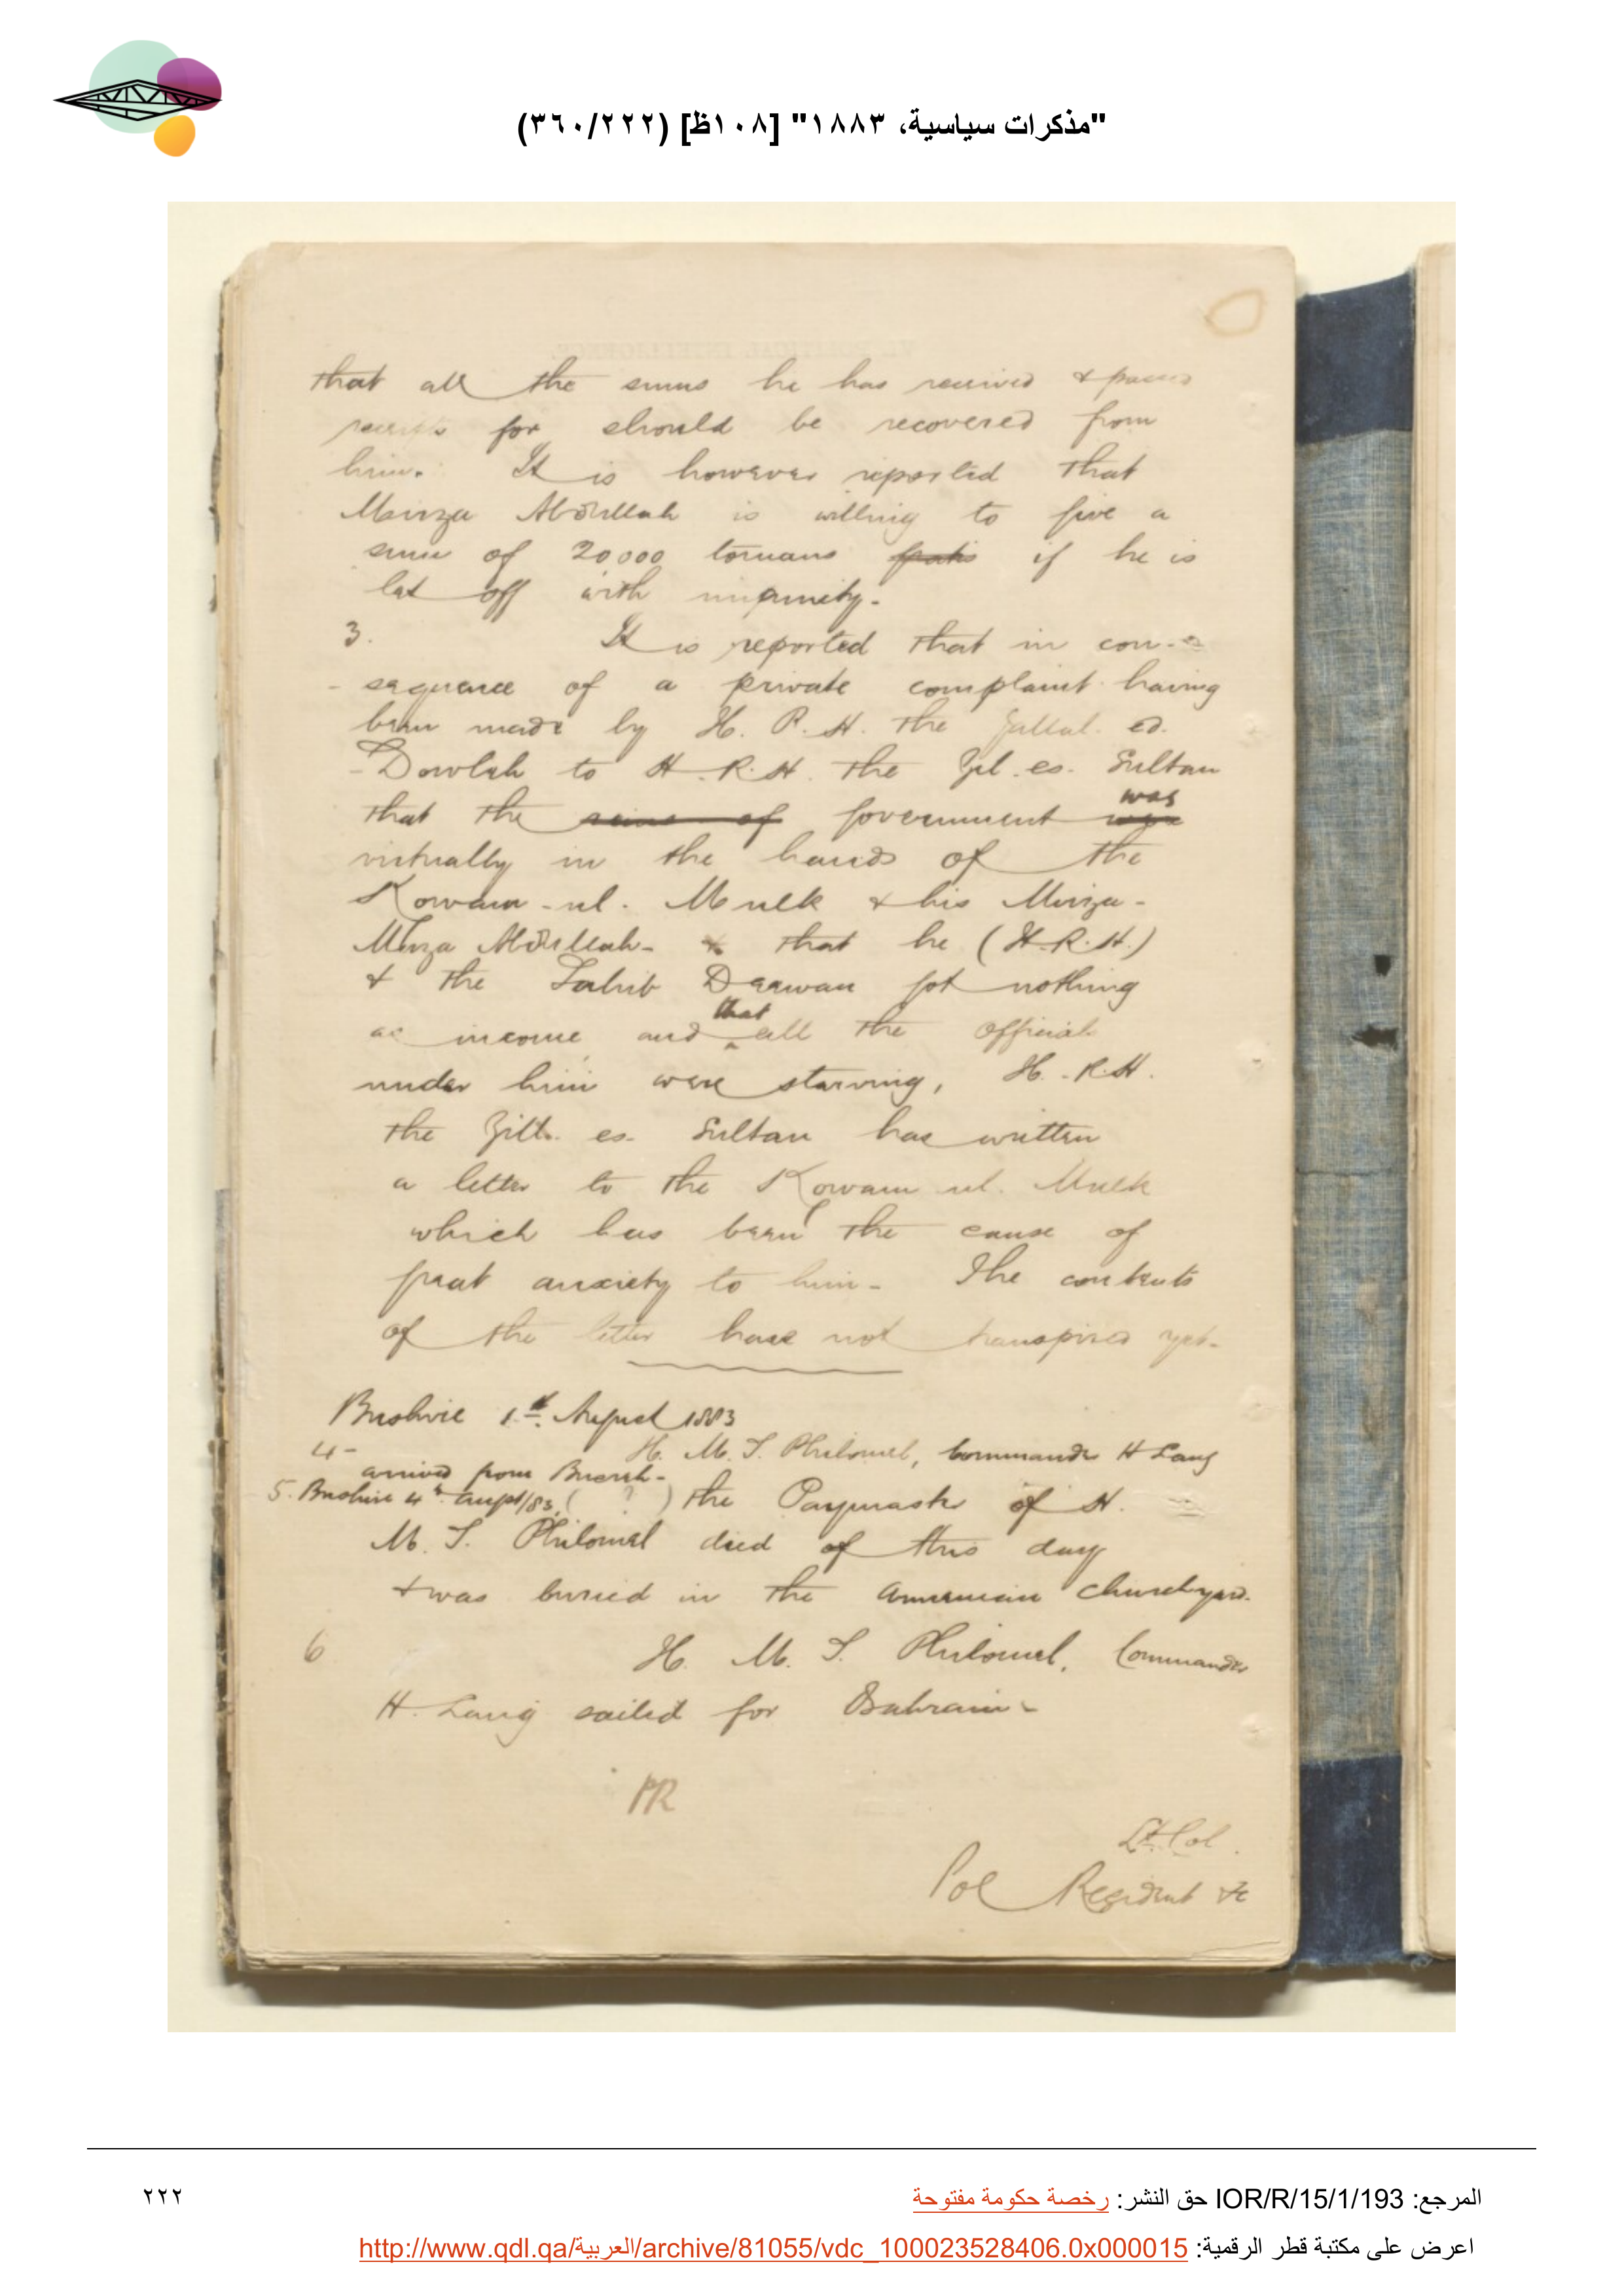 "مذكرات سياسية، ١٨٨٣" [١٠٨ظ] (٣٦٠/٢٢٢)
that all the sums he has received & passed
receipts for should be recovered from
him. It is however reported that
Mirza Abdullah is willing to give a
sum of 20000 tomans if he is
let off with impunity.
3. It is reported that in con-
-sequence of a private complaint having
been made by H. R. H. the Jallal. ed.
-Dowlah to H. R. H. the Zil. es. Sultan
that the government was
virtually in the hands of the
Kowam-ul. Mulk & his Mirza-
Mirza Abdullah- & that he (H.R.H.)
& the Sahib Deewan got nothing
as income and that all the officials
under him were starving, H. R. H.
the Zill. es. Sultan has written
a letter to the Kowam ul. Mulk
which has been the cause of
great anxiety to him- The contents
of the letter have not transpired yet-
Bushire 1st. August 1883
4- H. M. S. Philomel, Commander H Lang
arrived from
5. Bushire 4th August/83, ( ? ) the Paymaster of H.
M. S. Philomel died of this day
& was buried in the Armenian Churchyard.
6 H. M. S. Philomel, Commander
H. Lang sailed for Bahrain-
Lt. Col.
Pol Resident &c
المرجع: IOR/R/15/1/193 حق النشر: رخصة حكومة مفتوحة
٢٢٢
اعرض على مكتبة قطر الرقمية: http://www.qdl.qa/العربية/archive/81055/vdc_100023528406.0x000015